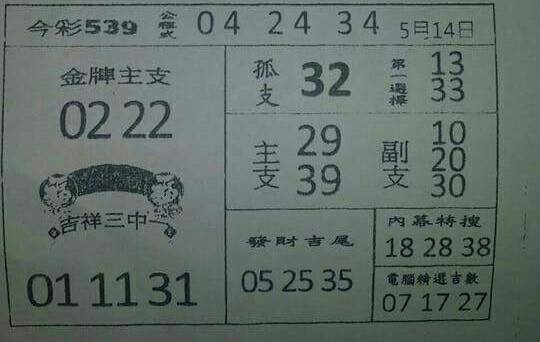 今彩539 公程式 04 24 34 5月14日
金牌主支
02 22
吉祥三中一
01 11 31
孤支 32
第一選擇 13
33
主支 29
39
副支 10
20
30
發財吉尾
05 25 35
內幕特搜
18 28 38
電腦精選吉數
07 17 27